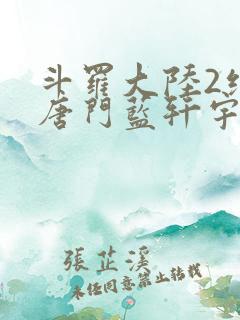 斗羅大陸2絕
唐門藍軒宇
張芷溪
未任同意禁止转载